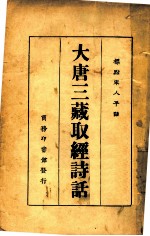 標點宋人平話
大唐三藏取經詩話
商務印書館發行